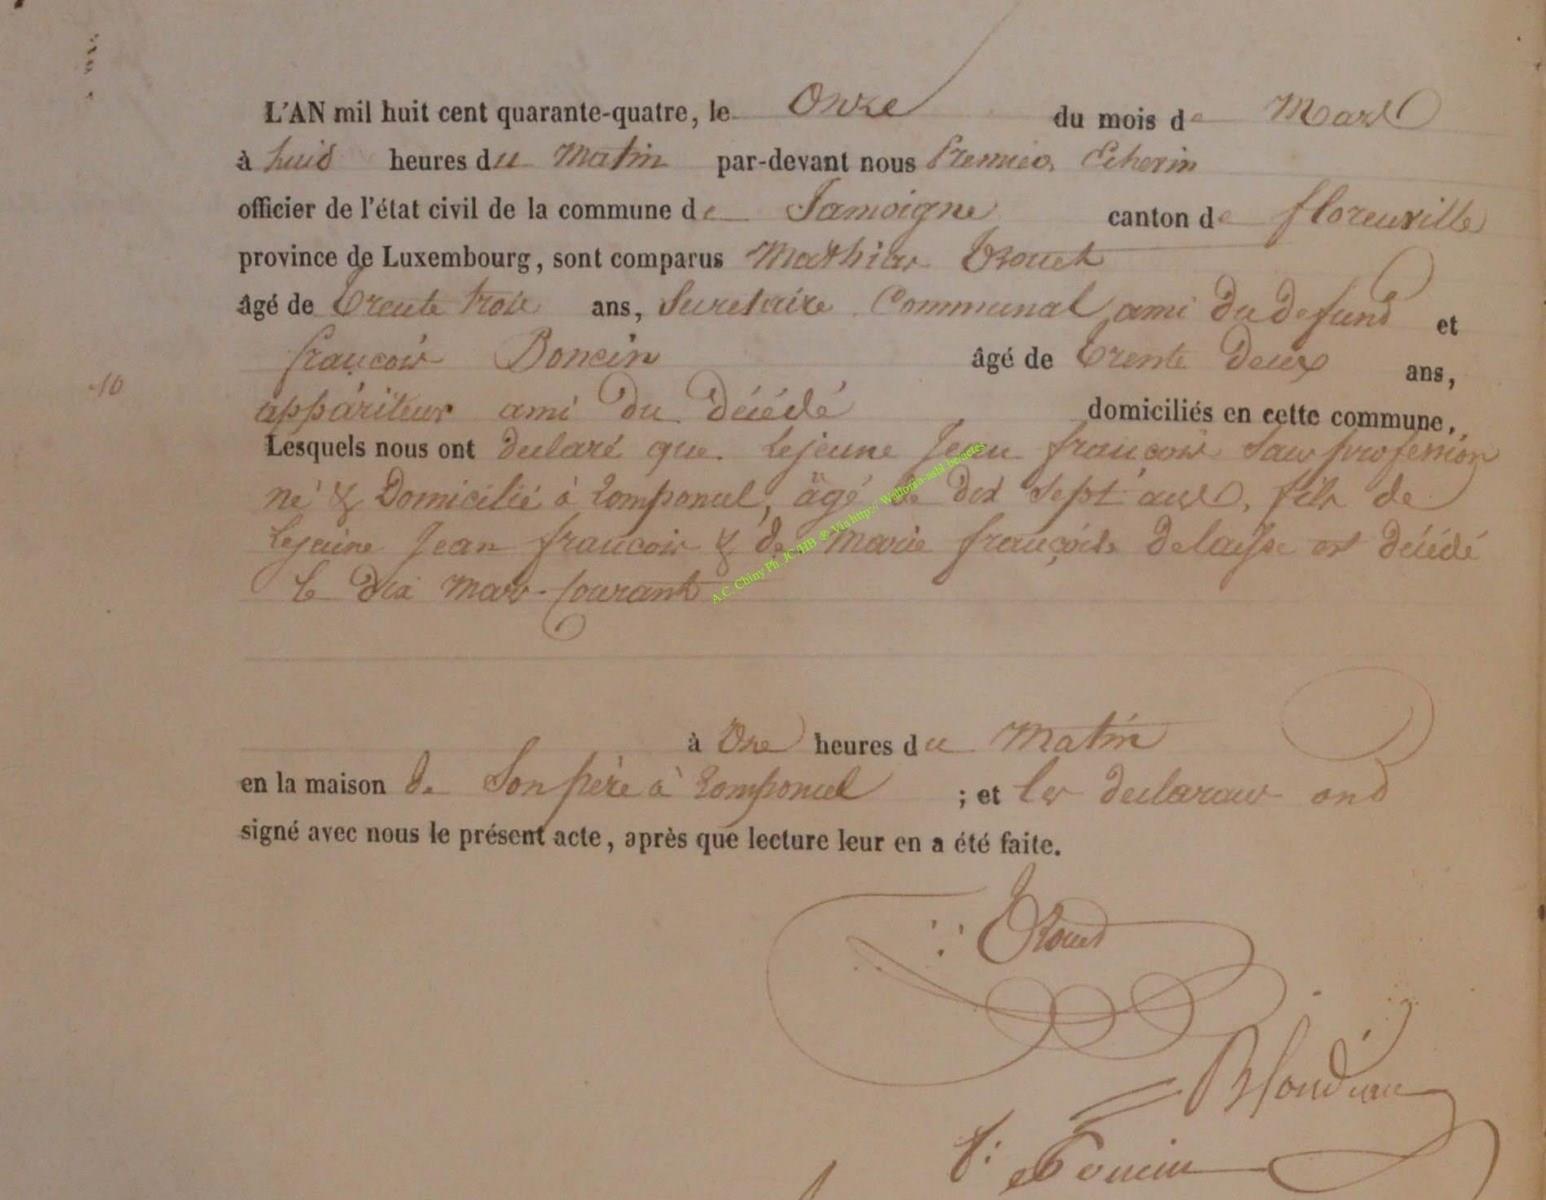 L'AN mil huit cent quarante-quatre, le Onze du mois de Mars
à huit heures du Matin par-devant nous Premier Echevin
officier de l'état civil de la commune de Jamoigne canton de florenville
province de Luxembourg, sont comparus Mathieu
âgé de trente trois ans, Secretaire Communal ami du defunt et
françois Poncin âgé de trente deux ans,
appariteur ami du décédé domiciliés en cette commune,
Lesquels nous ont declaré que Lejeune Jean françois Sans profession
10
né & Domicilié à Romponcel, âgé de dix sept ans, fils de
Lejeune Jean françois & de Marie françoise est décédé
le dix mars courant
A.C. Chiny Ph. JC/HB & Via http:// Wallonia-asbl.be/actes
à Onze heures du Matin
en la maison de Son père à Romponcel ; et les declarans ont
signé avec nous le présent acte, après que lecture leur en a été faite.
f: Poncin